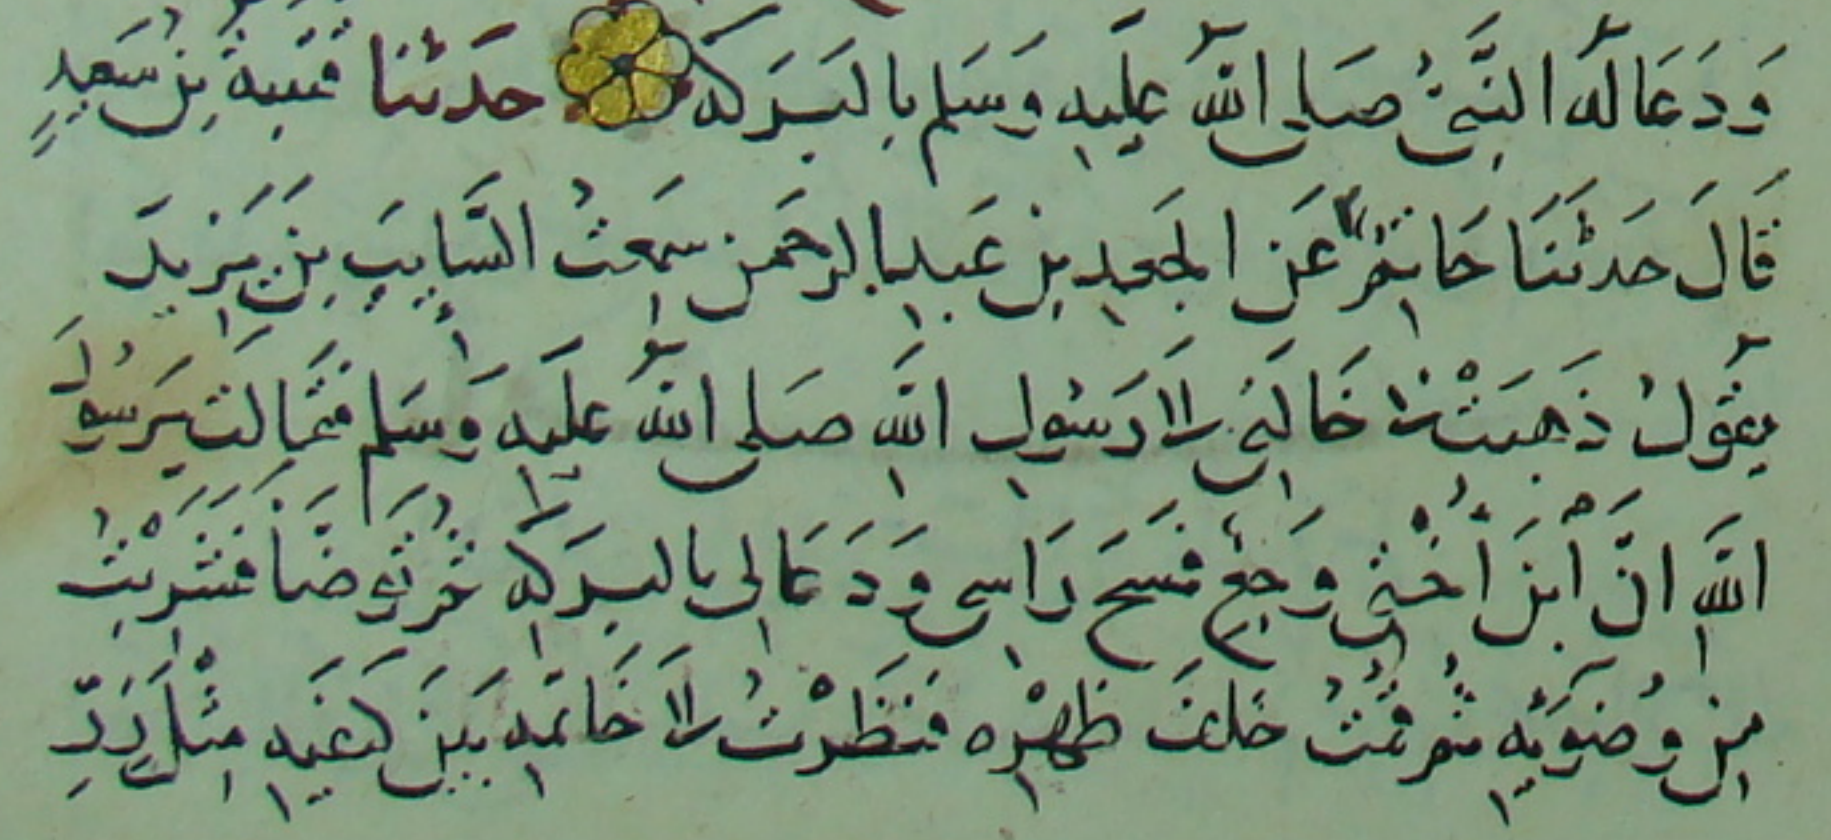 وَدَعَا لَهُ النَّبِيُّ صَلى اللهُ عَلَيهِ وَسَلم بِالبَرَكَه حَدثنا قتَيبةُ بنُ سَعِيدٍ
قَالَ حَدثَنَا حَاتِمٌ عَن الجَعدِ بنِ عَبدِ الرحمَن سَمعتُ السَّايِبَ بنَ يَزِيدَ
يَقُولُ ذَهَبَتْ بى خَالَتِي الى رَسُولِ اللهِ صَلى اللهُ عَلَيهِ وَسَلم فَقَالَت يَرَسُولَ
اللهِ انَّ ابنَ أُخْتِي وَجِعٌ فمَسَحَ رَاسِى وَدَعَا لِى بالبَرَكَهِ ثُم تَوَضَّأَ فَشَرِبْتُ
مِن وُضوَيِهِ ثُم قُمتُ خَلفَ ظَهْرِه فنَظَرْتُ الى خَاتَمِهِ بَينَ كَتفَيهِ مِثْلَ زِرِّ